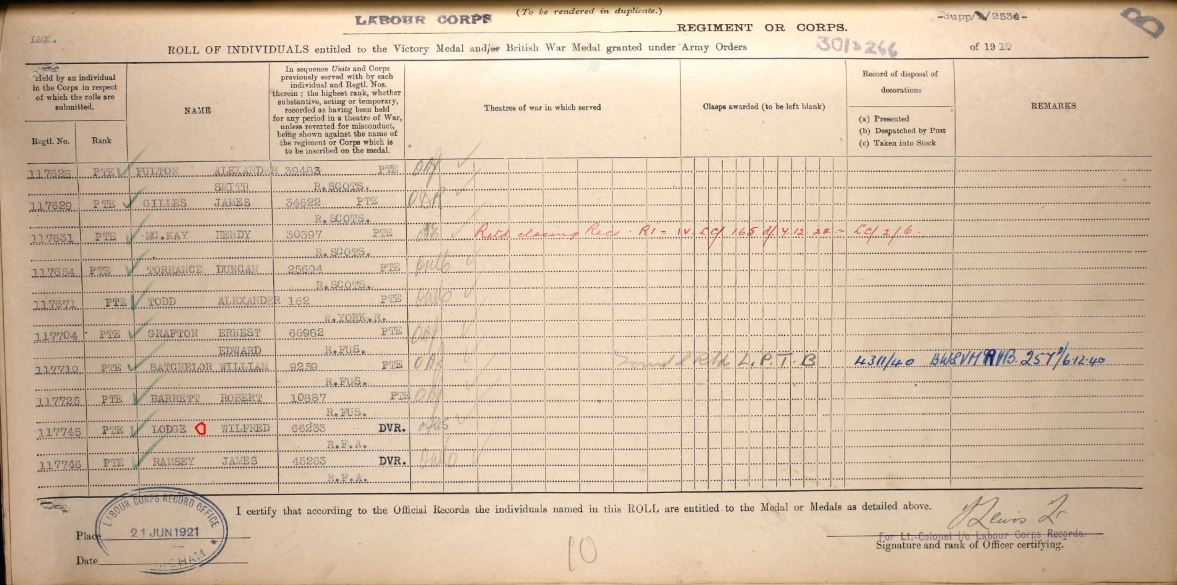 (To be rendered in duplicate.)
LABOUR CORPS
REGIMENT OR CORPS.
ROLL OF INDIVIDUALS entitled to the Victory Medal and/or British War Medal granted under Army Orders 301 & 266 of 1919
Held by an individual in the Corps in respect of which the rolls are submitted.
Regtl. No.
Rank
NAME
In sequence Units and Corps previously served with by each individual and Regtl. Nos. therein; the highest rank, whether substantive, acting or temporary, recorded as having been held for any period in a theatre of War, unless reverted for misconduct, being shown against the name of the regiment or Corps which is to be inscribed on the medal.
Theatres of war in which served
Clasps awarded (to be left blank)
Record of disposal of decorations
(a) Presented
(b) Despatched by Post
(c) Taken into Stock
REMARKS
117628 PTE FULTON ALEXANDER 39483 PTE
SMITH R.SCOTS.
117629 PTE GILLES JAMES 34622 PTE
R.SCOTS.
117631 PTE MC.KAY HENDY 30397 PTE
R.SCOTS.
117654 PTE TORRANCE DUNCAN 25604 PTE
R.SCOTS.
117671 PTE TODD ALEXANDER 162 PTE
W.YORK.R.
117704 PTE GRAFTON ERNEST 66982 PTE
EDWARD R.FUS.
117719 PTE BATCHELOR WILLIAM 9259 PTE L.P.T.B 4311/40 BW&VM RVB. 257P/6.12.40
R.FUS.
117725 PTE BARRETT ROBERT 10887 PTE
R.FUS.
117745 PTE LODGE WILFRED 66233 DVR.
R.F.A.
117746 PTE RAMSEY JAMES 45263 DVR.
R.F.A.
I certify that according to the Official Records the individuals named in this ROLL are entitled to the Medal or Medals as detailed above.
LABOUR CORPS RECORD OFFICE
Place
21 JUN 1921
Date
For Lt.-Colonel i/c Labour Corps Records.
Signature and rank of Officer certifying.
10